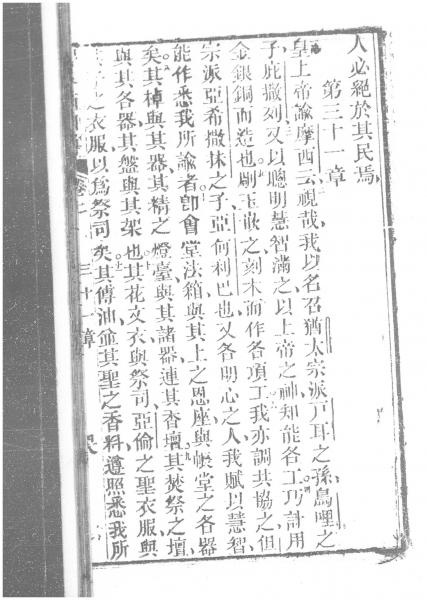 人必絕於其民焉、
第三十一章
皇上帝諭摩西云、視哉、我以名召猶太宗派戸耳之孫、烏哩之
子、庇撒列、又以聰明慧智滿之以上帝之神知能各工巧計用
金銀銅而造也、刷玉嵌之刻木而作各項工、我亦調共協之、但
宗派亞希撒抹之子亞何利巴也、又各明心之人、我賦以慧智、
能作悉我所諭者、卽會堂法箱與其上之恩座、與帳堂之各器
矣、其棹與其器、其精之燈臺、與其諸器、連其香壇、其焚祭之壇、
與其各器、其盤與其架也、其花文衣、與祭司亞倫之聖衣服、與
子之衣服、以爲祭司矣、其傅油、並其聖之香料、遵照悉我所
卷二
三十一章